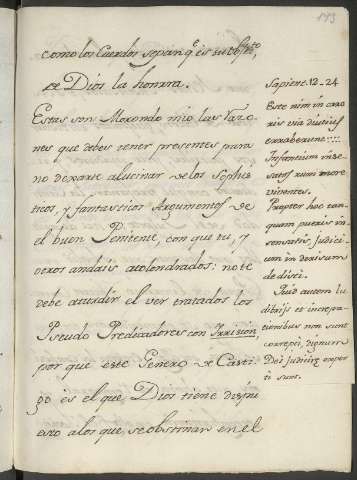 173
como los Cuerdos sepan q.e es
a Dios la honrra.
Estas son Morondo mio las Razo-
nes que debes tener presentes para
no dexarte alucinar de los Sophis-
ticos, y fantasticos Argumentos de
el buen Penitente, con que tu, y
otros andais atolondrados: no te
debe aturdir el ver tratados los
Pseudo Predicadores con Irrision,
por que este Genero de Casti-
go es el que Dios tiene dispu
esto a los que se obstinan en el
Sapient. 12-24
Etenim in erro
ris via diutius
errabant::::
Infantium inse
satorum more
viventes.
Propter hoc tan
quam pueris in
sensatis Judici-
um in derisum
dedisti.
Qui autem lu
dibrijs et increpa
tionibus non sunt
correpti, dignum
Dei Judicium exper
ti sunt.